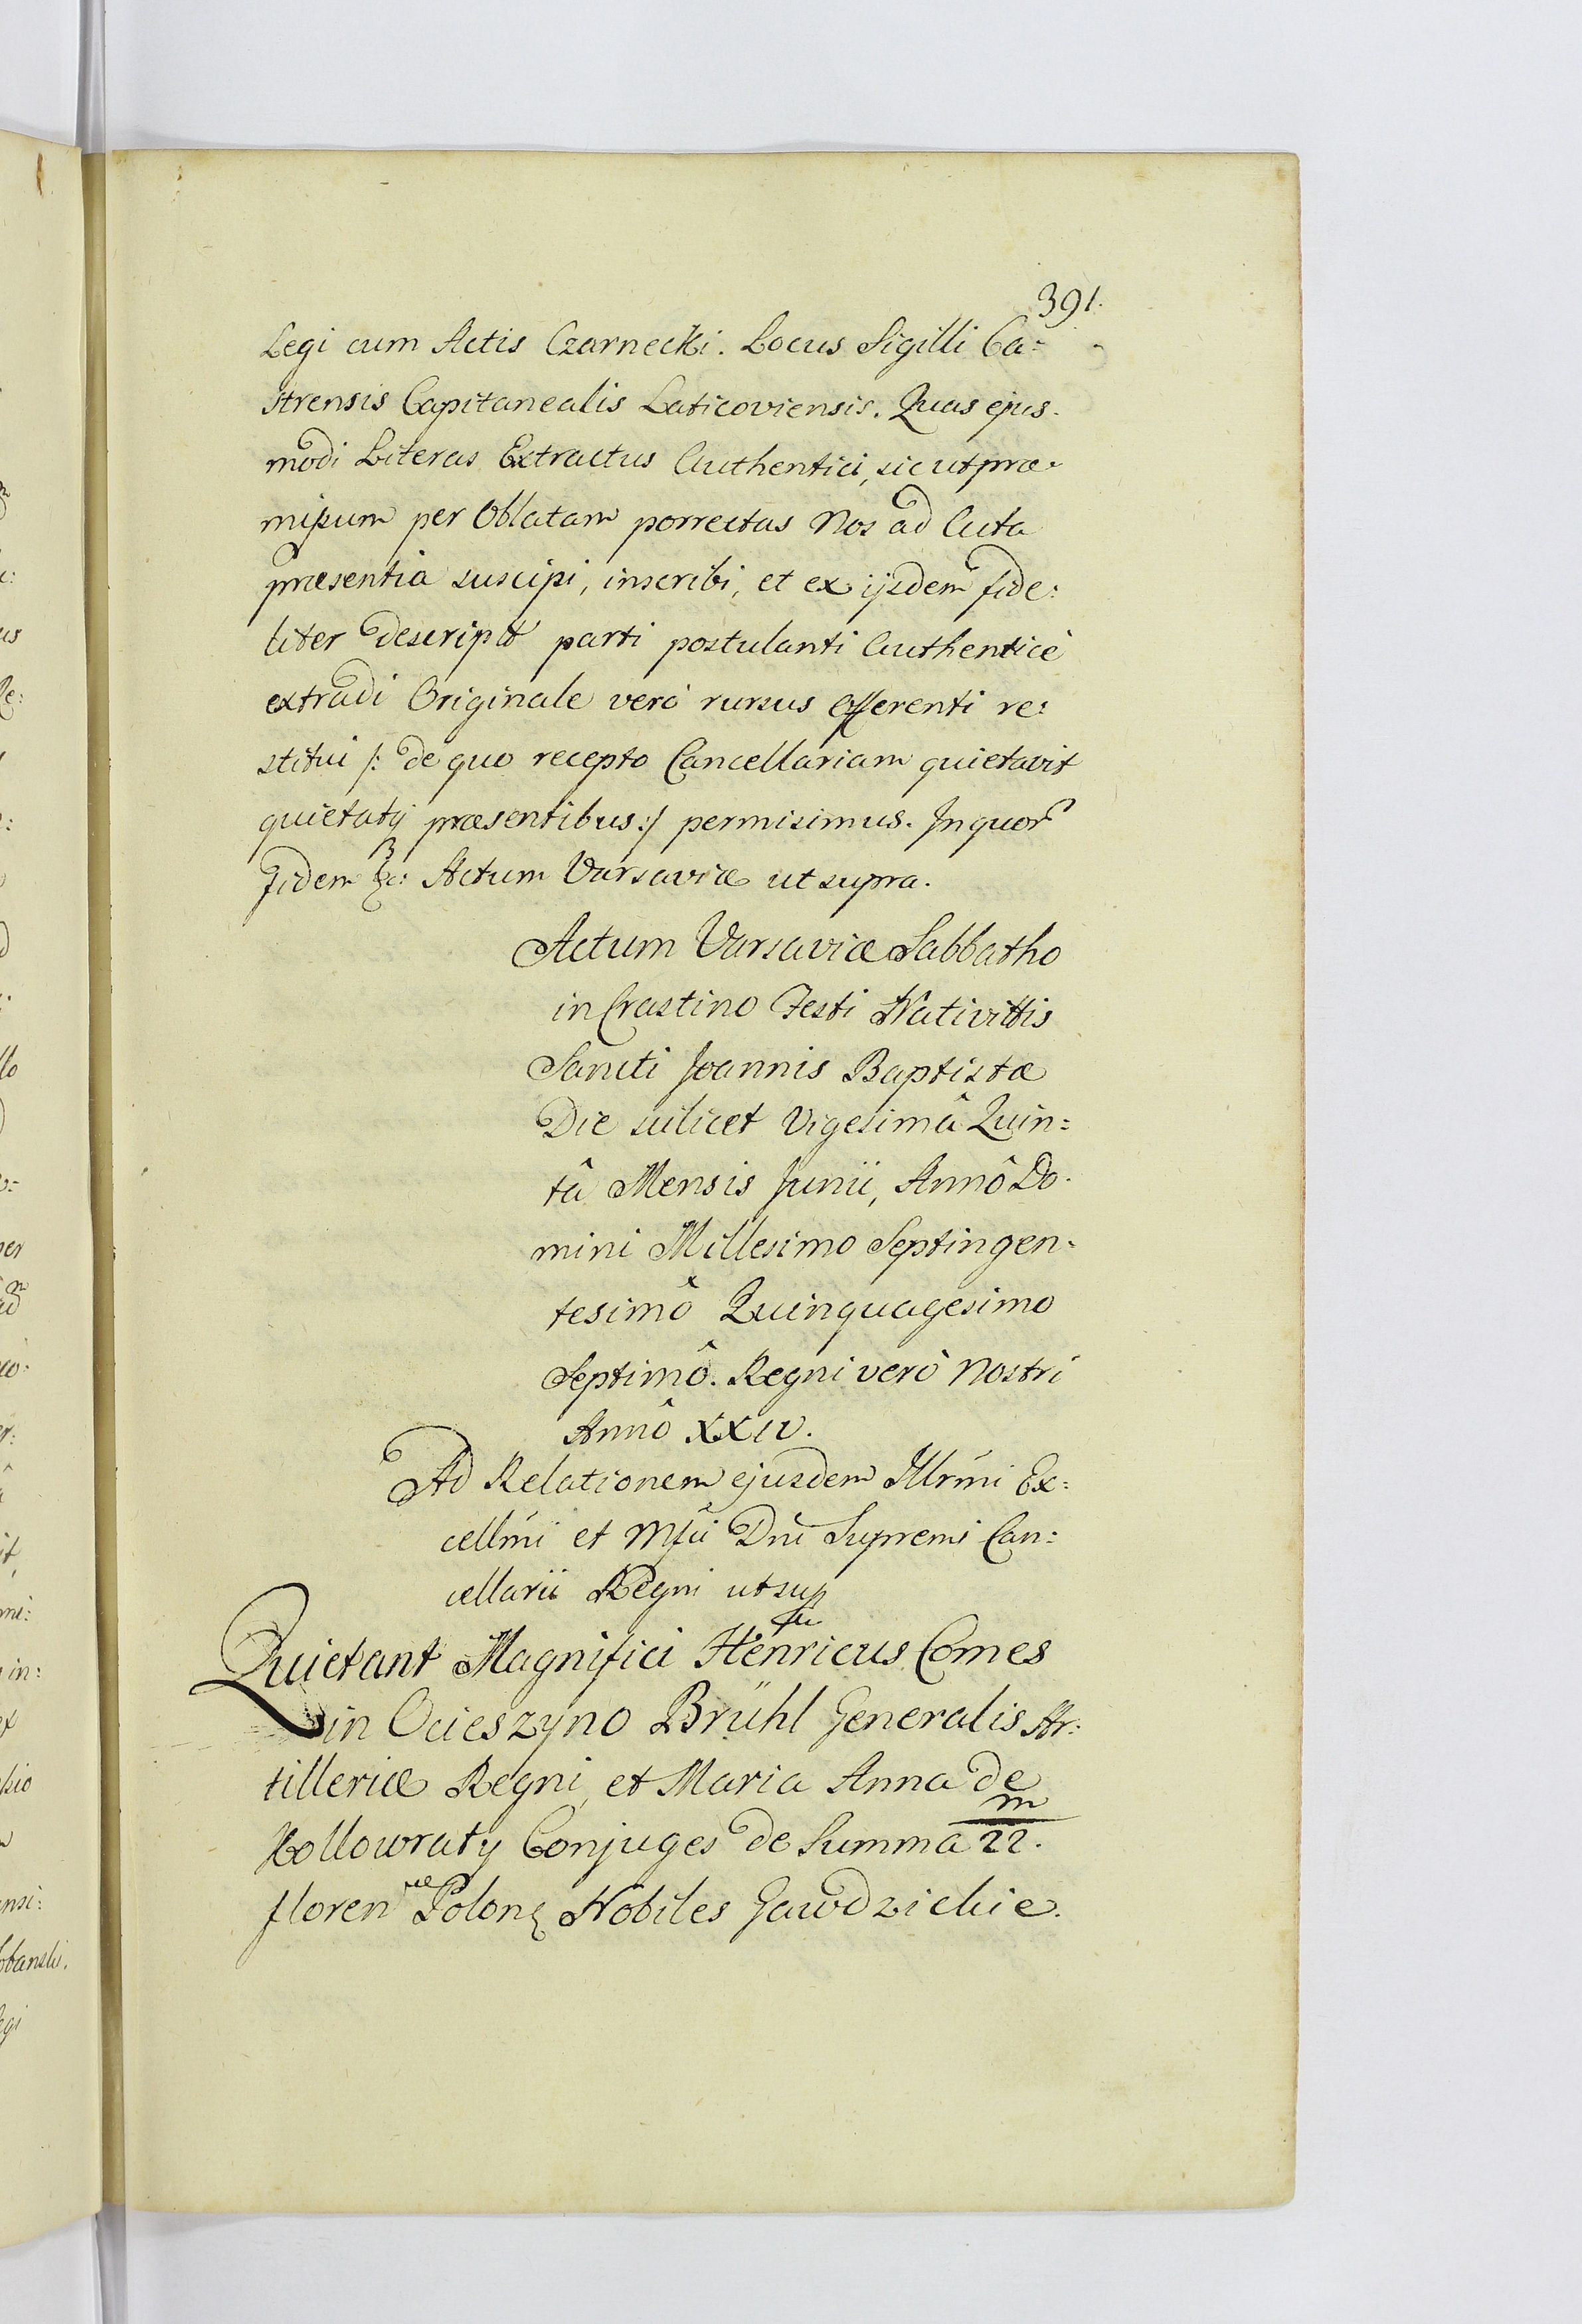 391.
Legi cum Actis Czarnecki. Locus Sigilli Ca=
strensis Capitanealis Laticoviensis. Quas ejus-
modi Literas Extractus Authentici, sic ut præ-
missum per Oblatam porrectas Nos ad Acta
præsentia suscipi, inscribi, et ex ijsdem fide:
liter descript parti postulanti Authenticè
extradi Originale verò rursus Offerenti re:
stitui /: de quo recepto Cancellariam quietavit
quietatq præsentibus :/ permisimus. In quor
Fidem &c: Actum Varsaviæ ut supra.
Actum Varsaviæ Sabbatho
in Crastino Festi Nativittis
Sancti Joannis Baptistæ
Die scilicet Vigesimâ Quin=
tâ Mensis Junii, Annô Do-
mini Millesimo Septingen-
tesimô Quinquagesimo
Septimô. Regni verò Nostri
Annô XXIV.
Ad Relationem ejusdem Illrmi Ex:
cellmi et Mfci Dni Supremi Can:
cellarii Regni ut sup
Quietant Magnifici Henricus Comes
in Ocieszyno Brühl Generalis Ar:
tilleriæ Regni, et Maria Anna de
Kollowraty Conjuges de Summa 22.
m
floren Polon Nobiles Gawdzickie.